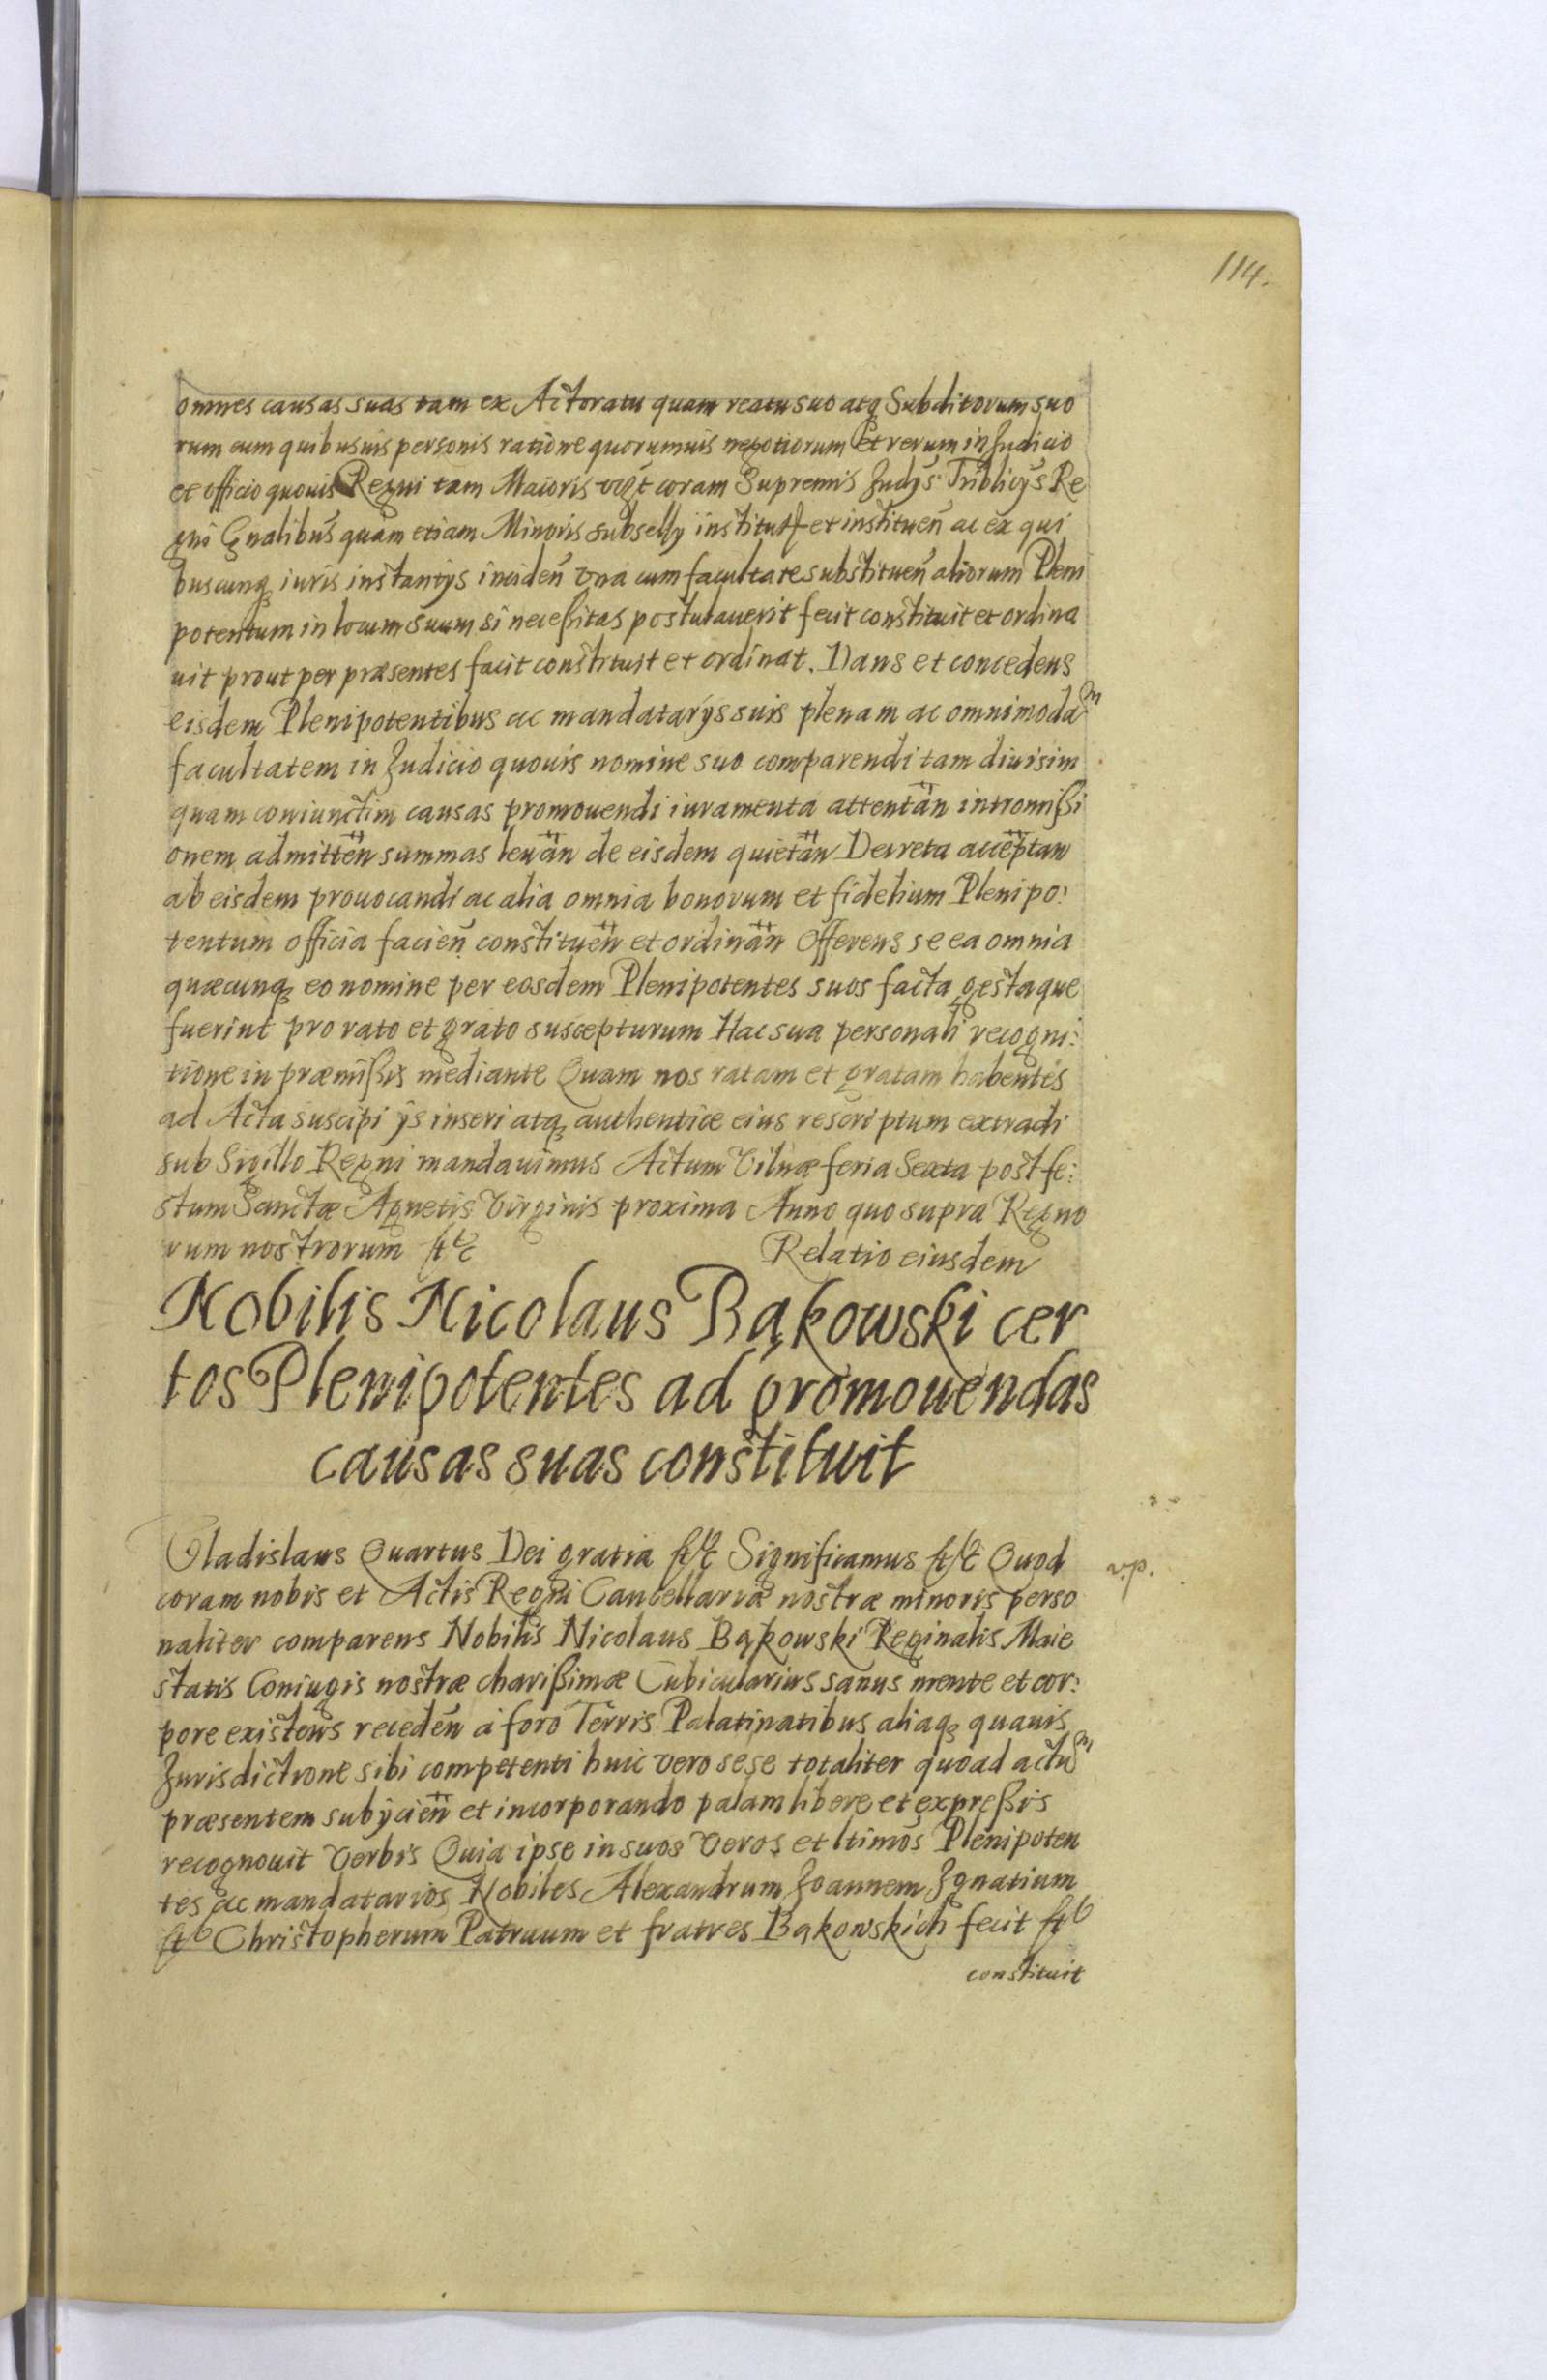 114.
omnes causas suas tam ex Actoratu quam reatu suo atq Subditorum suo
rum cum quibusuis personis ratione quorumuis negotiorum Et rerum in Judicio
et officio quouis Regni tam Maioris coram Supremis Judys Re
gni Gnalibus quam etiam Minoris subselly et instituen̄ ac ex qui
buscunq iuris instantys inciden̄ Una cum facultate substituen̄ aliorum Pleni
potentum in locum suum si necessitas postulauerit fecit constituit et ordina
uit prout per præsentes facit constituit et ordinat. Dans et concedens
eisdem Plenipotentibus ac mandatarÿs suis plenam ac omnimodam
facultatem in Judicio quouis nomine suo comparendi tam diuisim
quam coniunctim causas promouendi iuramenta attentan̄ intromissi
onem admitten̄ summas leuan̄ de eisdem quietan̄ Decreta acceptan
ab eisdem prouocandi ac alia omnia bonorum et fidelium Plenipo:
tentum officia facien̄ constituen̄ et ordinan̄ Offerens se ea omnia
quæcunq eo nomine per eosdem Plenipotentes suos facta gestaque
fuerint pro rato et grato suscepturum Hac sua personali recogni:
tione in præmissis mediante Quam nos ratam et gratam habentes
ad Acta suscipi ÿs inseri atq authentice eius rescriptum extradi
sub Sigillo Regni mandauimus Actum Vilnæ feria Sexta post fe:
stum Sanctæ Agnetis Virginis proxima Anno quo supra Regno
rum nostrorum etc Relatio eiusdem
Nobilis Nicolaus Bąkowski cer
tos Plenipotentes ad promouendas
causas suas constituit
Vladislaus Quartus Dei gratia etc Significamus etc Quod
v.p.
coram nobis et Actis Regni Cancellariæ nostræ minoris perso
naliter comparens Nobilis Nicolaus Bąkowski Reginalis Maie
statis Coniugis nostræ charissimæ Cubicularius sanus mente et cor:
pore existens receden̄ à foro Terris Palatinatibus aliaq quauis
Jurisdictione sibi competenti huic vero sese totaliter quoad actum
præsentem subÿcien̄ et incorporando palam libere et expressis
recognouit Verbis Quia ipse in suos Veros et ltimos Plenipoten
tes ac mandatarios Nobiles Alexandrum Joannem Ignatium
et Christopherum Patruum et fratres Bąkowskich fecit et
constituit